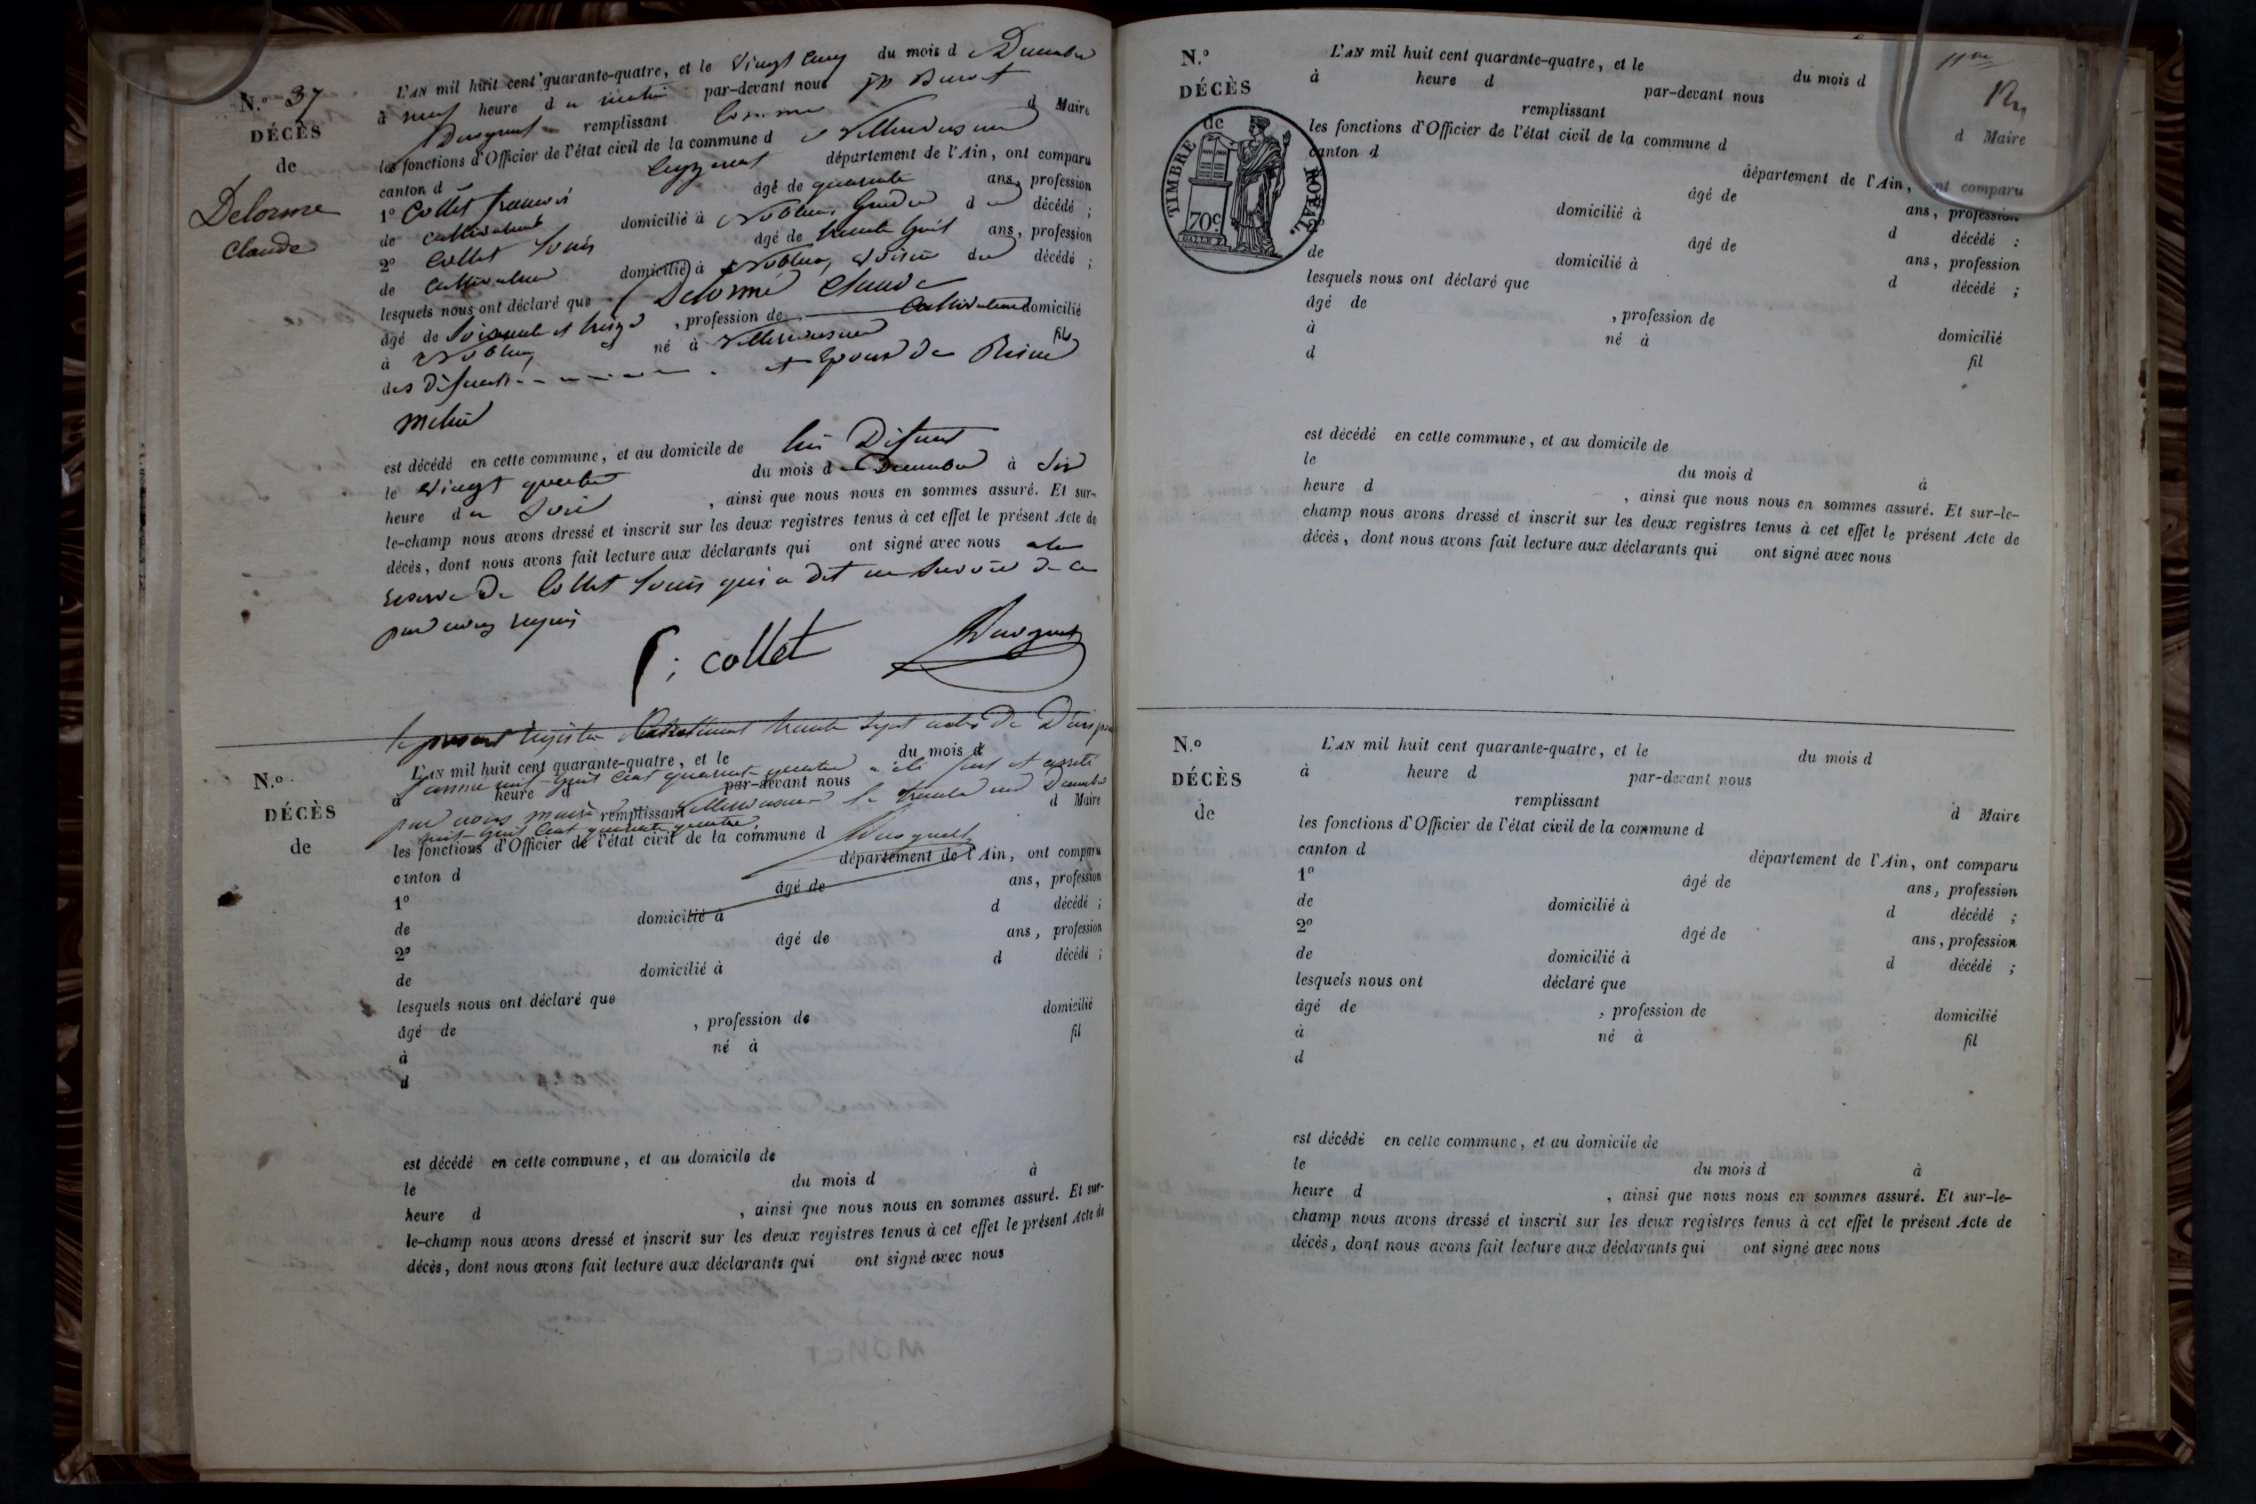 N.° 37
DÉCÈS
de
Delorme
Claude
L'AN mil huit cent quarante-quatre, et le vingt cinq du mois d Decembre
à neuf heure d u matin par-devant nous Benoit
remplissant comme d Maire
les fonctions d'Officier de l'état civil de la commune d e Villereversure
canton d département de l'Ain, ont comparu
1° Collet françois âgé de quarante ans, profession
de cultivateur domicilié à Noblens d u décédé ;
2° Collet Louis âgé de trente huit ans, profession
de cultivateur domicilié à Noblens voisin du décédé ;
lesquels nous ont déclaré que Delorme Claude
âgé de soixante et treize , profession de cultivateur domicilié
à Noblens né à Villereversure fils
des défunts et epoux de Reine
est décédé en cette commune, et au domicile de lui Défunt
le vingt quatre du mois d e Decembre à six
heure du soir , ainsi que nous nous en sommes assuré. Et sur-
le-champ nous avons dressé et inscrit sur les deux registres tenus à cet effet le présent Acte de
décès, dont nous avons fait lecture aux déclarants qui ont signé avec nous a la
reserve de Collet Louis qui a dit ne savoir de ce
par nous requis
f: collet
le present registre contenant trente sept actes de Décès pour
L'AN mil huit cent quarante-quatre, et le du mois d
l'année mil huit cent quarante quatre a été clos et arrêté
à heure d par-devant nous
par nous maire de Villereversure le trente un Decembre
remplissant d Maire
mil huit cent quarante quatre
N.°
DÉCÈS
de
les fonctions d'Officier de l'état civil de la commune d
canton d département de l'Ain, ont comparu
1° âgé de ans, profession
de domicilié à d décédé ;
2° âgé de ans, profession
de domicilié à d décédé ;
lesquels nous ont déclaré que
âgé de , profession de domicilié
à né à fil
d
est décédé en cette commune, et au domicile de
le du mois d à
heure d , ainsi que nous nous en sommes assuré. Et sur-
le-champ nous avons dressé et inscrit sur les deux registres tenus à cet effet le présent Acte de
décès, dont nous avons fait lecture aux déclarants qui ont signé avec nous
N.°
DÉCÈS
de
TIMBRE ROYAL.
70c
L'AN mil huit cent quarante-quatre, et le du mois d
à heure d par-devant nous
remplissant d Maire
les fonctions d'Officier de l'état civil de la commune d
canton d département de l'Ain, ont comparu
âgé de ans, profession
domicilié à d décédé ;
âgé de ans, profession
de domicilié à d décédé ;
lesquels nous ont déclaré que
âgé de , profession de domicilié
à né à fil
d
est décédé en cette commune, et au domicile de
le du mois d à
heure d , ainsi que nous nous en sommes assuré. Et sur-le-
champ nous avons dressé et inscrit sur les deux registres tenus à cet effet le présent Acte de
décès, dont nous avons fait lecture aux déclarants qui ont signé avec nous
N.°
DÉCÈS
de
L'AN mil huit cent quarante-quatre, et le du mois d
à heure d par-devant nous
remplissant d Maire
les fonctions d'Officier de l'état civil de la commune d
canton d département de l'Ain, ont comparu
1° âgé de ans, profession
de domicilié à d décédé ;
2° âgé de ans, profession
de domicilié à d décédé ;
lesquels nous ont déclaré que
âgé de , profession de domicilié
à né à fil
d
est décédé en cette commune, et au domicile de
le du mois d à
heure d , ainsi que nous nous en sommes assuré. Et sur-le-
champ nous avons dressé et inscrit sur les deux registres tenus à cet effet le présent Acte de
décès, dont nous avons fait lecture aux déclarants qui ont signé avec nous